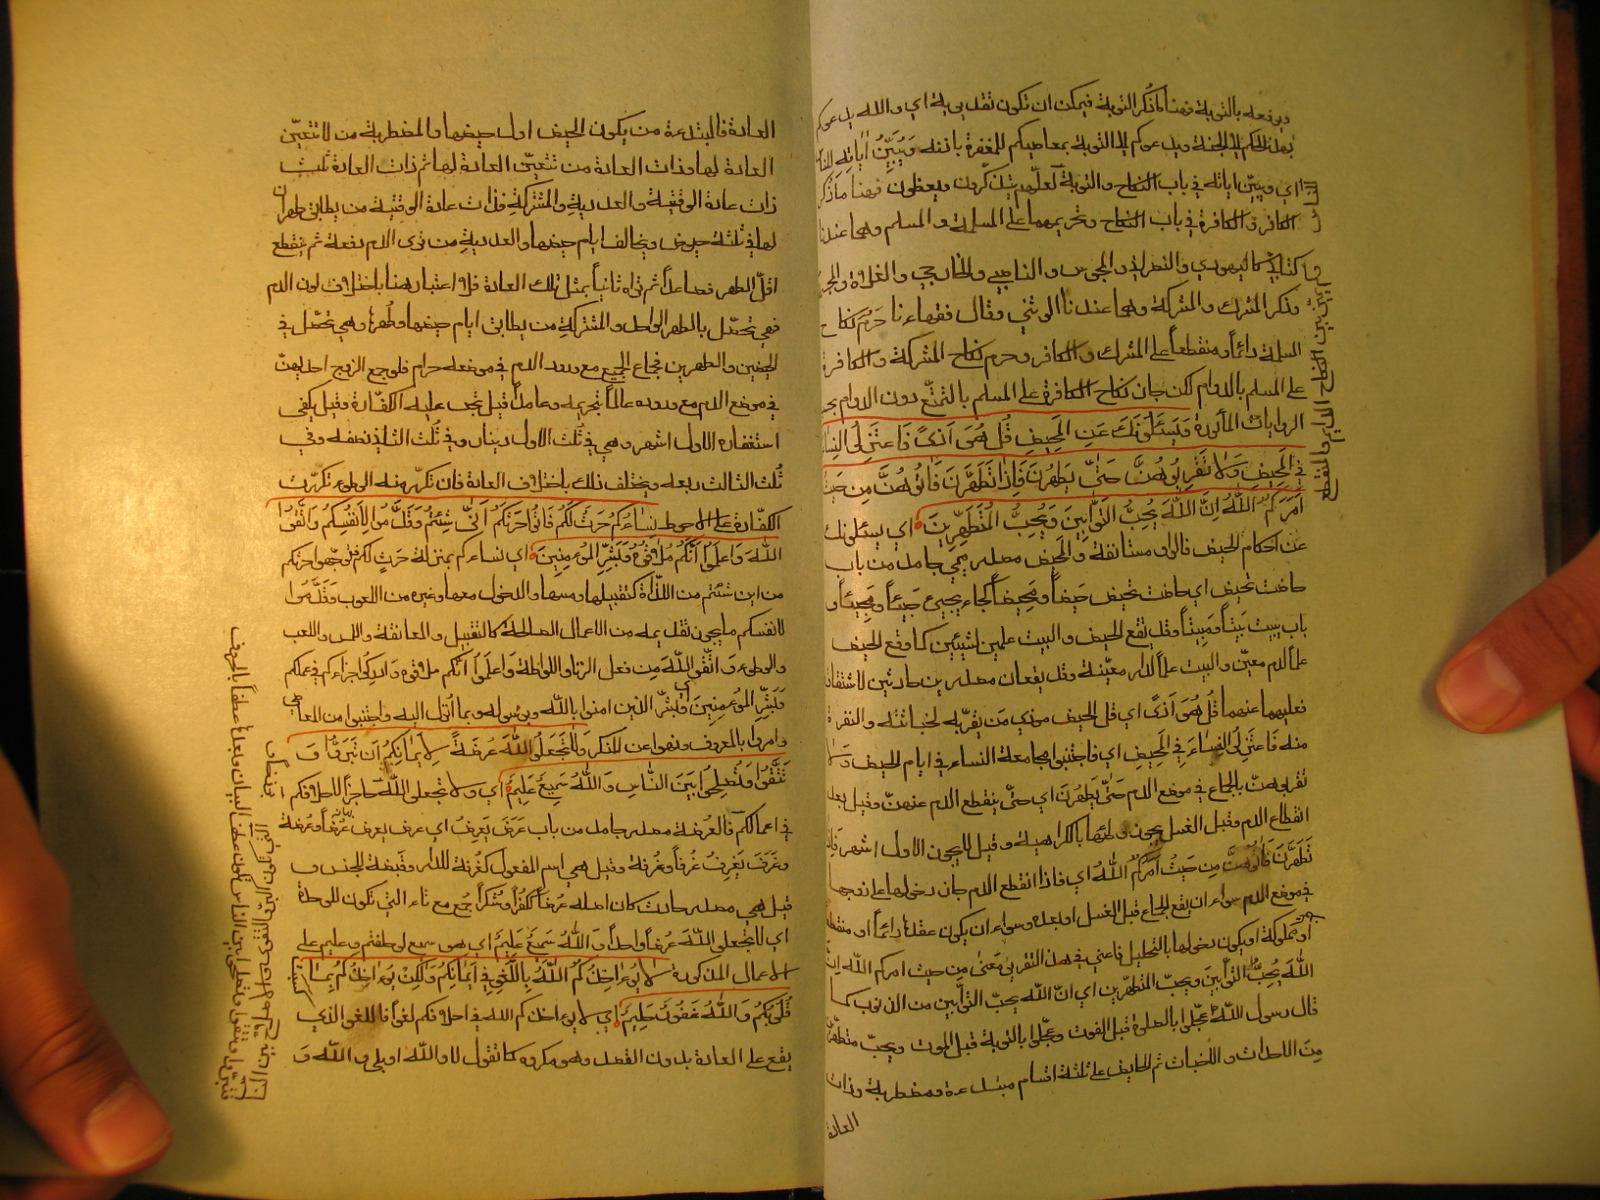 ويوقعه بالتوبة فهنا ما ذكر التوبة فيمكن ان تكون تقديرية اي والله يدعوكم
بهذا الحكم الى الجنة ويدعوكم الى التوبة بمعاصيكم للمغفرة باذنه وَيُبَيِّنُ اٰيَاتِهِ
اي ويبيّن اياته في باب النكاح والتوبة لعلّهم يتذكّرون ويعظون فهنا ما ذكر
الكافر والكافرة في باب النكاح وتحريمهما على المسلمة والمسلم وهما عندنا
كاليهودي والنصراني والمجوس والناصبي والخارجي والغلاة
وذكر المشرك والمشركة وهما عندنا الوثني وقال فقهاءنا حَرُمَ نكاح
المسلمة دائماً ومنقطعاً على المشرك والكافر وحرم نكاح المشركة والكافرة
على المسلم بالدوام لكن جاز نكاح الكافرة على المسلم بالتمتّع دون الدوام
الروايات المأثورة وَيَسْئَلُونَكَ عَنِ الْمَحِيضِ قُلْ هُوَ اَذىً فَاعْتَزِلُوا النِساءَ
فِي الْمَحِيضِ وَلاٰ تَقْرَبُوهُنَّ حَتّٰى يَطْهُرْنَ فَاِذٰا تَطَهَّرْنَ فَاْتُوهُنَّ مِنْ حَيْثُ
اَمَرَكُمُ اللّٰهُ اِنَّ اللّٰهَ يُحِبُّ التَوّٰابِينَ وَيُحِبُّ الْمُتَطَهِّرِينَ اي يسئلونك
عن احكام الحيض فالواو مستانفة والمحيض مصدر ميمي جامد من باب
حاضت تحيض اي حاضت تحيض حيضاً ومَحِيضاً كجاء يجيئ جَيئاً ومَجِيئاً و
باب يبيت بَيتاً ومَبِيتاً وقد يقع الحيض والبيت علمين لشيئين كما وقع الحيض
علماً لدم معيّن والبيت علماً لدار معيّنة وقد يقعان مصدرين حادثين لاشتقاق
فعليهما عنهما قُلْ هُوَ اَذىً اي قل الحيض موذي مَن يقربه لخباثته والنفرة
منه فَاعْتَزِلُوا النِّسٰاءَ فِي الْمَحِيضِ اي فاجتنبوا مجامعة النساء في ايام الحيض وَلاٰ
تقربوهنّ بالجماع في موضع الدم حَتّٰى يَطْهُرْنَ اي حتّى ينقطع الدم عنهنّ وقيل بعد
انقطاع الدم وقبل الغسل يجوز وطئها بالكراهية وقيل لا يجوز الاول اشهر فَاِذٰا
تَطَهَّرْنَ فَاْتُوهُنَّ مِنْ حَيْثُ اَمَرَكُمُ اللّٰهُ اي فاذا انقطع الدم جاز دخولها على زوجها
في موضع الدم سواء ان يقع الجماع قبل الغسل او بعده وسواء ان يكون عقدها دائماً او منقطعاً
او مملوكة او يكون دخولها بالتحليل فاعني في هذا التقرير معنى من حيث امركم الله اِنَّ
اللّٰهَ يُحِبُّ التَوّٰابِينَ ويحبّ المتطهّرين اي انّ اللّٰه يحبّ التوّابين من الذنوب كما
قال رسول اللّٰه عجّلوا بالصلوة قبل الفوت وعجّلوا بالتوبة قبل الموت ويحبّ متطهّرين
مِنَ الاحداث والاخباث ثم الحايض على ثلثة اقسام مبتدءة ومضطربة وذات
العادة
العادة فالمبتدءة من يكون الحيض اول حيضها والمضطربة من لا تتعيّن
العادة لها وذات العادة من تتعيّن العادة لها ثم ذات العادة ثلث
ذات عادة الوقتية والعددية والمشتركة فذات عادة الوقتية من يطابق طهران
لها في ثلثة حيوض ويخالف ايام حيضها والعددية من ترى الدم دفعة ثم ينقطع
اقلّ الطهر فصاعداً ثم تراه ثانياً بمثل تلك العادة فلا اعتبار هنا باختلاف لون الدم
فهي تحصّل بالطهر الواحد والمشتركة من يطابق ايام حيضها وطُهرها وهي تحصّل في
الحيضين والطهرين فجماع الجميع مع ورود الدم في موضعه حرام فلو جمع الزوج احديهنّ
في موضع الدم مع وروده عالماً بتحريمه وعامداً قيل تجب عليه الكفّارة وقيل يكفي
استغفاره الاول اشهر وهي في ثلث الاول دينار وفي ثُلث الثاني نصفه وفي
ثُلث الثالث ربعه ويختلف ذلك باختلاف العادة فان تكرّر منه الوطئ تكرّرت
الكفّارة على الاحوط نِسٰاءُكُمْ حَرْثٌ لَكُمْ فَاْتُوا حَرْثَكُمْ اَنّٰى شِئْتُمْ وَقَدِّمُوا لِاَنْفُسِكُمْ وَاتَّقُوا
اللّٰهَ وَاعْلَمُوا اَنَّكُمْ مُلاٰقُوهُ وَبَشِّرِ الْمُؤْمِنِينَ اي نساءكم بمنزلة حَرْثٍ لكم فتوجّهوا حرثكم
من اين شئتم من اللذّات كتقبيلها ومسها والدخول معها وغيره من اللعوب وَقَدِّمُوا
لانفسكم ما يجوز تقديمه من الاعمال الصالحة كالتقبيل والمعانقة واللمس واللعب
والوطئ وَاتَّقُوا اللّٰهَ مِن فعل الزنا واللواطة وَاعْلَمُوا اَنّكم ملاقوه وَاَدرِكوا جزاءكم في عملكم
وَبَشِّرِ الْمُؤْمِنِينَ اي وبشّر الذين امنوا باللّٰه وبرسوله وبما اُنزل اليه واجتنبوا من المعاصي
وامروا بالمعروف ونهوا عن المنكر وَلاٰ تَجْعَلُوا اللّٰهَ عُرْضَةً لِاَيْمٰانِكُمْ اَنْ تَبَرُّوا وَ
تَتَّقُوا وَتُصْلِحُوا بَيْنَ النّٰاسِ وَاللّٰهُ سَمِيعٌ عَلِيمٌ اي ولا تجعلوا اللّٰه حاجزاً لاحلافكم
في اعمالكم فالعُرضة مصدر جامد من باب عَرَضَ يَعرِضُ اي عرض يعرض عُرْضاً وعُرضة
وغَرَفَ يَغرِفُ غُرفاً وغُرفة وقيل هي اسم المفعول كغُرفة للدار وقَبضة للجنس و
قيل هي مصدر حادث كان اصله عُرضاً كَكُفراً وشُكراً جُمع مع تاء التي تكون للوحدة
اي لا تجعلوا اللّٰه عرضاً واحداً وَاللّٰهُ سَمِيعٌ عَلِيمٌ اي هو سميع لحلفتم وعليم على
الاعمال المذكورة لاٰ يُؤٰاخِذُكُمُ اللّٰهُ بِاللَّغْوِ فِي اَيْمٰانِكُمْ وَلٰكِنْ يُؤٰاخِذُكُمْ بِمٰا كَسَبَتْ
قُلُوبُكُمْ وَاللّٰهُ غَفُورٌ حَلِيمٌ اي لا يؤاخذكم اللّٰه في احلافكم لغواً فاللغو الذي
يقع على العادة بدون القصد وهو مكروه كما تقول لا واللّٰه او بلى واللّٰه وَ